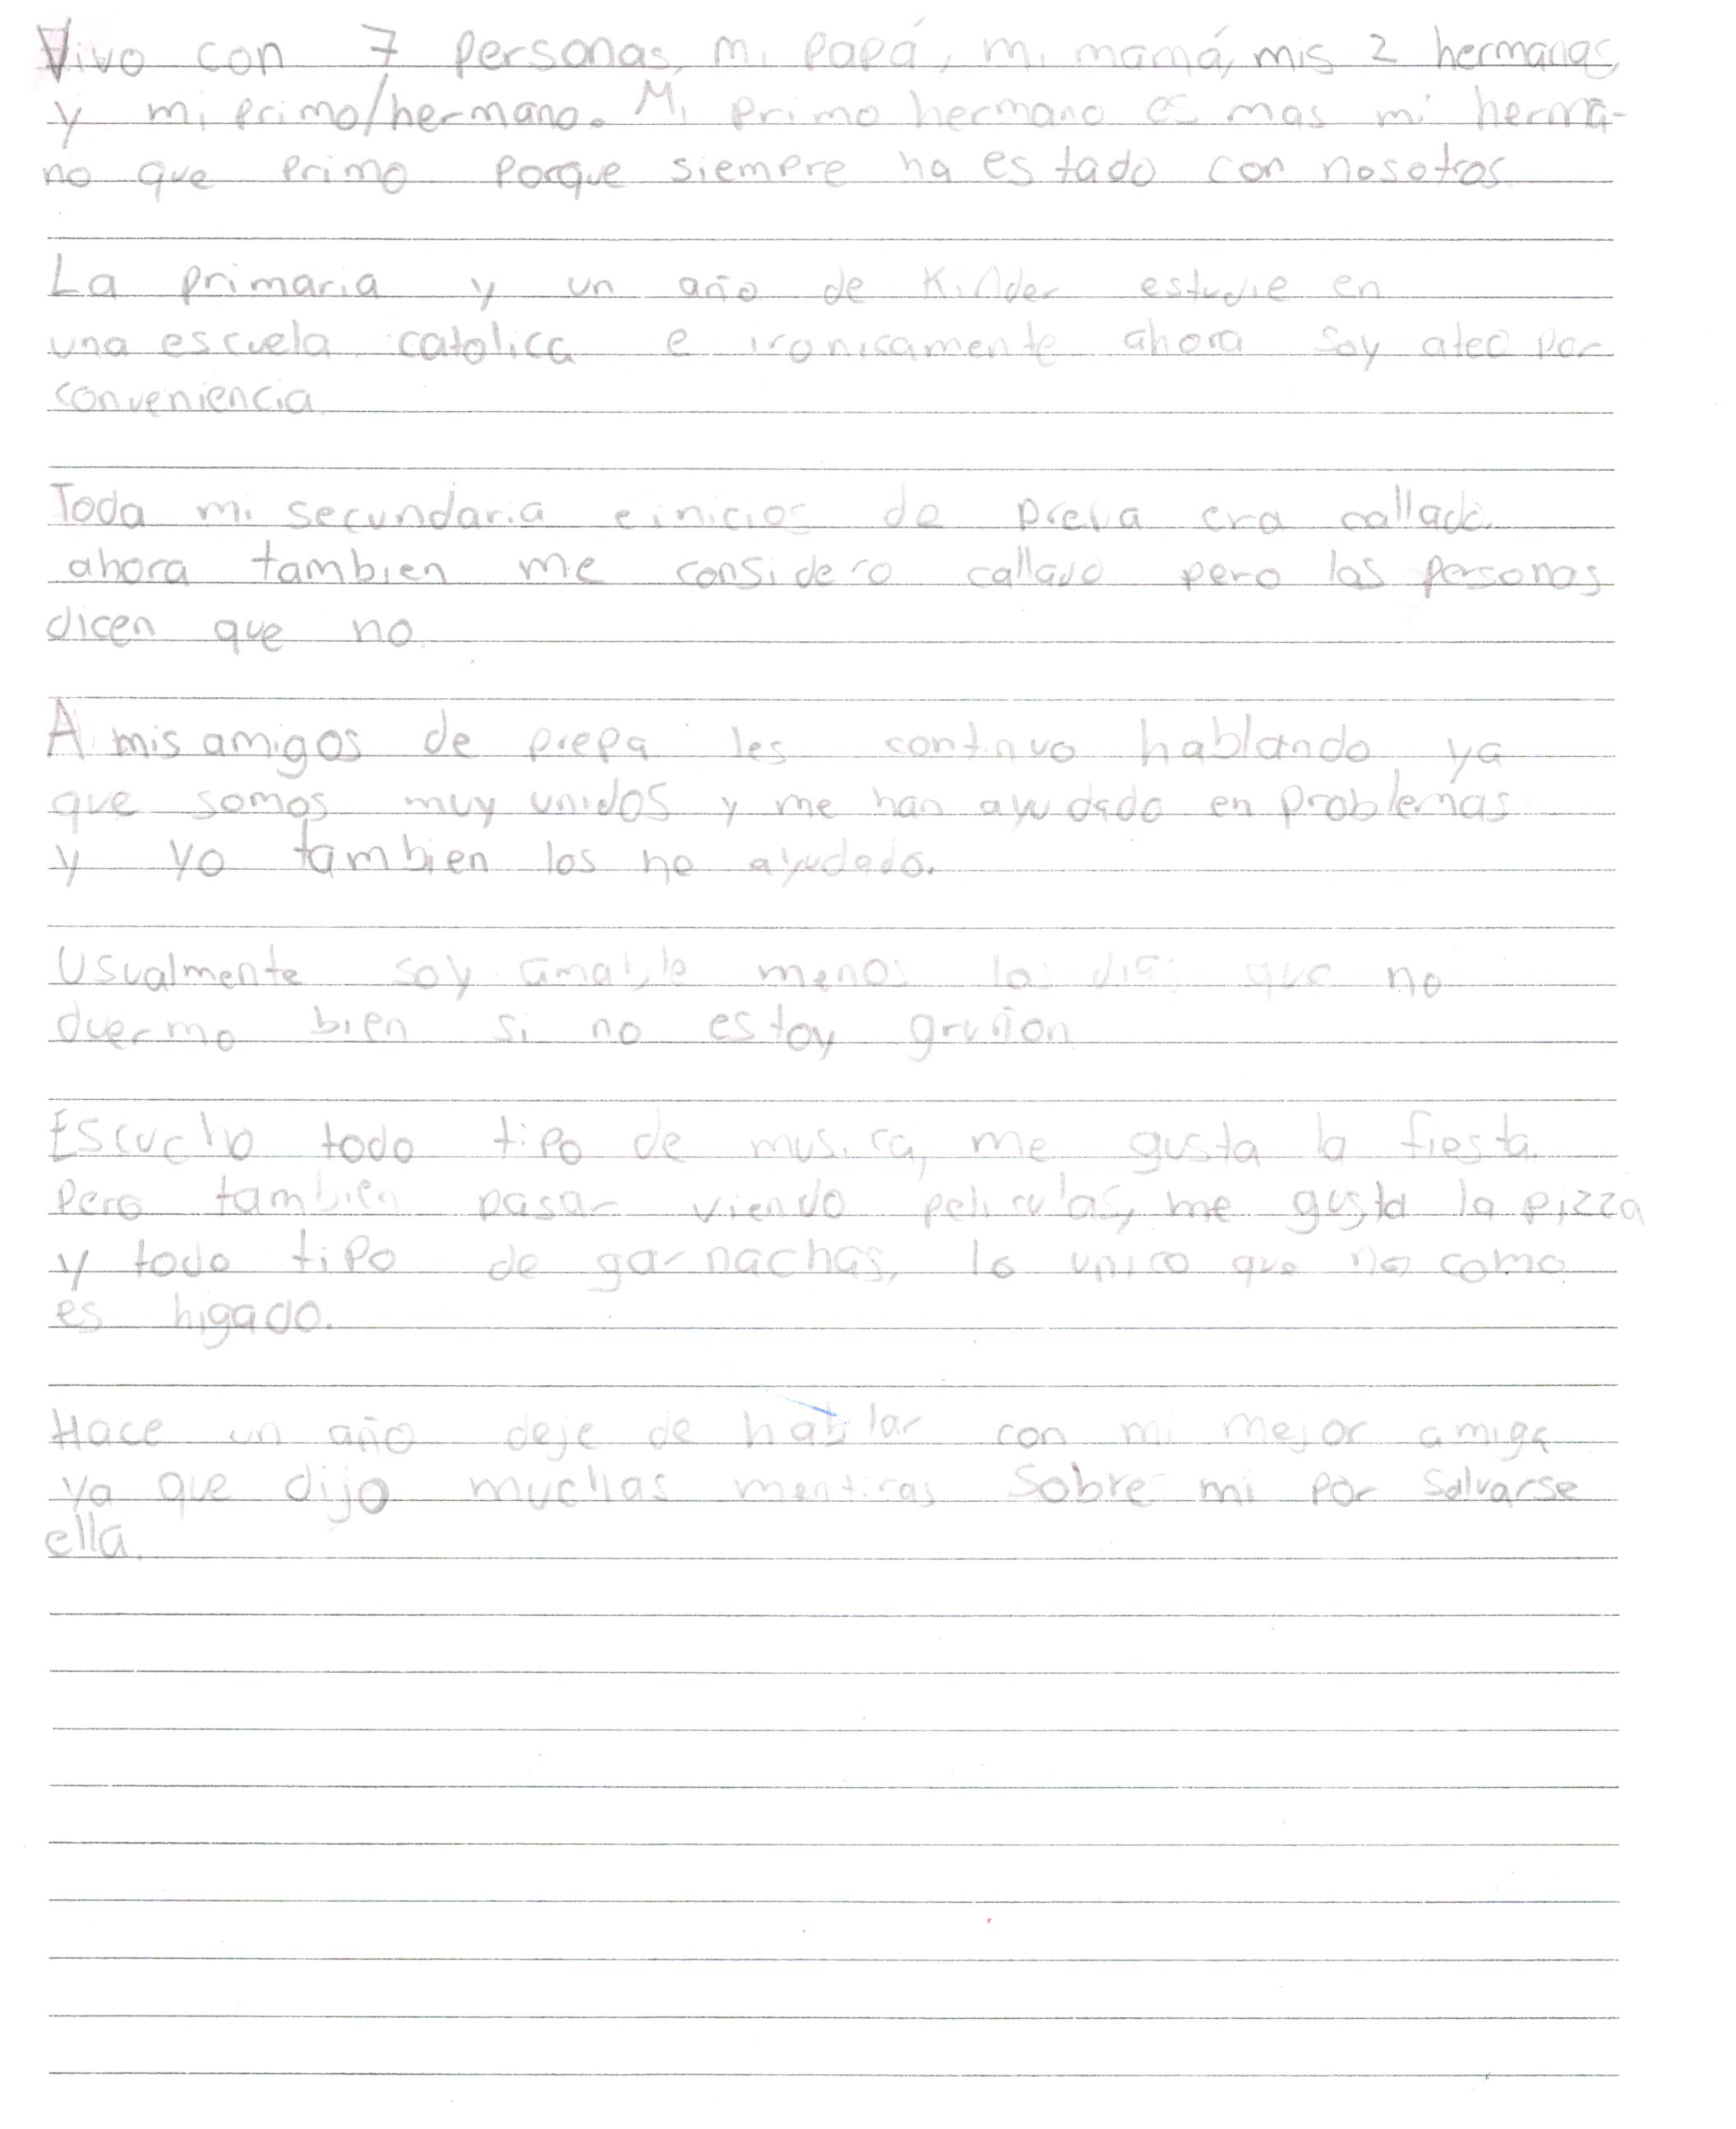 Vivo con 7 personas, mi papá, mi mamá, mis 2 hermanas,
y mi primo/hermano. Mi primo hermano es mas mi herma-
no que primo porque siempre ha estado con nosotros.
La primaria y un año de Kinder estudie en
una escuela catolica e ironicamente ahora soy ateo por
conveniencia.
Toda mi secundaria e inicios de prepa era callado
ahora tambien me considero callado pero las personas
dicen que no.
A mis amigos de prepa les continuo hablando ya
que somos muy unidos y me han ayudado en problemas
y yo tambien los he ayudado.
Usualmente soy amable menos los dias que no
duermo bien si no estoy gruñon
Escucho todo tipo de musica, me gusta la fiesta
pero tambien pasar viendo peliculas, me gusta la pizza
y todo tipo de garnachas, lo unico que no como
es higado.
Hace un año deje de hablar con mi mejor amiga
ya que dijo muchas mentiras sobre mi por salvarse
ella.